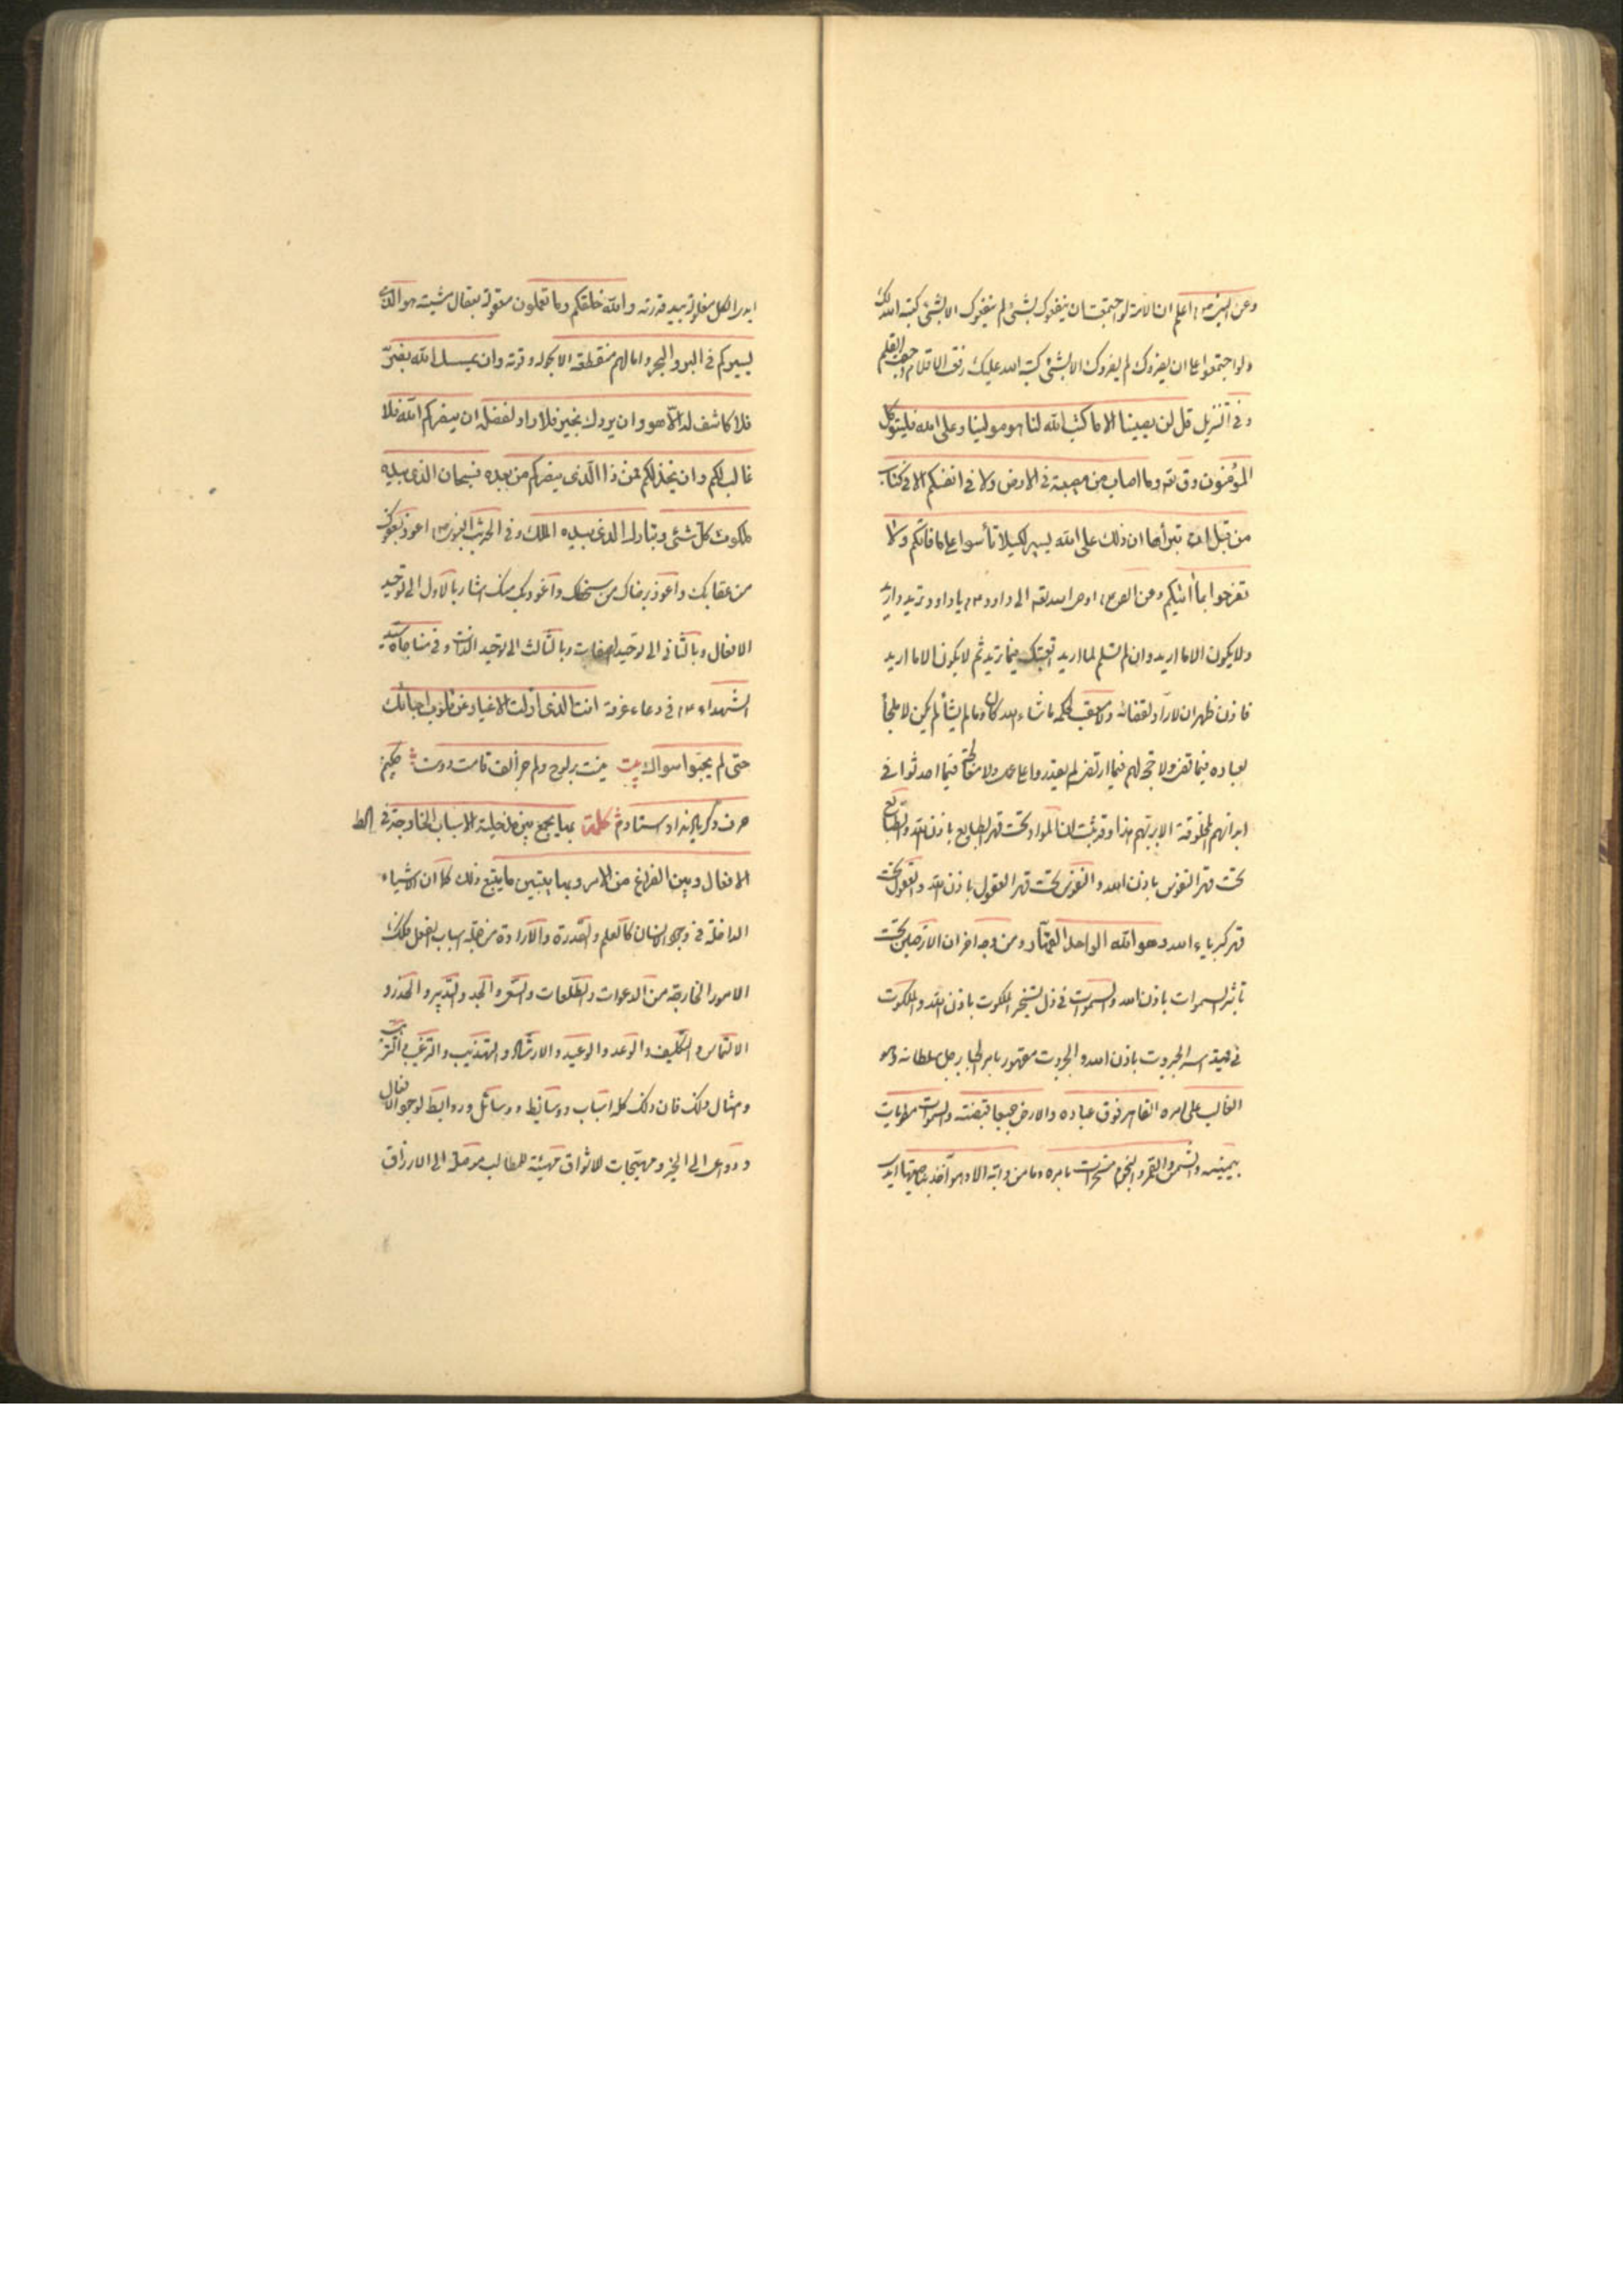 وعن النبي ص اعلم ان الامة لو اجتمعت ان ينفعوك بشئ لم ينفعوك الا بشئ كتبه الله لك
ولو اجتمعوا على ان يضروك لم يضروك الا بشئ كتبه الله عليك رفعت الاقلام وجف القلم
وفي التنزيل قل لن يصيبنا الا ما كتب الله لنا هو مولينا وعلى الله فليتوكل
المؤمنون وق تعه وما اصاب من مصيبة في الارض ولا في انفسكم الا في كتاب
من قبل ان نبرأها ان ذلك على الله يسير لكيلا تأسوا على ما فاتكم ولا
تفرحوا بما اتيكم وعن الص ع اوحى الله تعه الى داود ع يا داود تريد واريد
ولا يكون الا ما اريد وان لم تسلم لما اريد اتعبتك فيما تريد ثم لا يكون الا ما اريد
فاذن ظهر ان لا راد لقضائه ولا معقب لحكمه ما شاء الله كان وما لم يشأ لم يكن لا ملجأ
لعباده فيما قضى ولا حجة لهم فيما ارتضى لم يقدروا على عمل ولا معالجة فيما احدث في
ابدانهم المخلوقة الا بربهم هذا وقد ثبت ان المواد تحت قهر الطبايع باذن الله والطبايع
تحت قهر النفوس باذن الله والنفوس تحت قهر العقول باذن الله والعقول تحت
قهر كبرياء الله وهو الله الواحد القهار ومن وجه اخر ان الارضين تحت
تأثير السموات باذن الله والسموات في ذل تسخير الملكوت باذن الله والملكوت
في قيد اسر الجبروت باذن الله والجبروت مقهور بامر الجبار جل سلطانه وهو
الغالب على امره القاهر فوق عباده والارض جميعا قبضته والسموات مطويات
بيمينه والشمس والقمر والنجوم مسخرات بامره وما من دابة الا وهو آخذ بناصيتها ايد
ايدي الكل مغلولة بيد قدرته والله خلقكم وما تعملون معقولة بعقال مشيته هو الذي
يسيركم في البر والبحر وآمالهم منقطعة الا بحوله وقوته وان يمسسك الله بضر
فلا كاشف له الا هو وان يردك بخير فلا راد لفضله ان ينصركم الله فلا
غالب لكم وان يخذلكم فمن ذا الذي ينصركم من بعده فسبحان الذي بيده
ملكوت كل شئ وتبارك الذي بيده الملك وفي الحديث النبوي ص اعوذ بعفوك
من عقابك واعوذ برضاك من سخطك واعوذ بك منك اشار بالاول الى توحيد
الافعال وبالثاني الى توحيد الصفات وبالثالث الى توحيد الذات وفي مناجاة سيد
الشهداء ع في دعاء عرفة انت الذي ازلت الاغيار عن قلوب احبائك
حتى لم يحبوا سواك بيت نيست بر لوح دلم جز الف قامت دوست چكنم
حرف دگر ياد نداد استادم كلمة بها يجمع بين مدخلية الاسباب الخارجة في
الافعال وبين الفراغ من الامر وبها يتبين ما يتبع ذلك كما ان الاشياء
الداخلة في وجود الانسان كالعلم والقدرة والارادة من جملة اسباب الفعل فكذلك
الامور الخارجة من الدعوات والطاعات والسعي والجد والتدبير والحذر و
الالتماس والتكليف والوعد والوعيد والارشاد والتهذيب والترغيب والترهيب
وامثال ذلك فان ذلك كله اسباب ووسائط ووسائل وروابط لوجود الافعال
ودواعي الى الخير ومهيجات للاشواق مهيئة للمطالب موصلة الى الارزاق